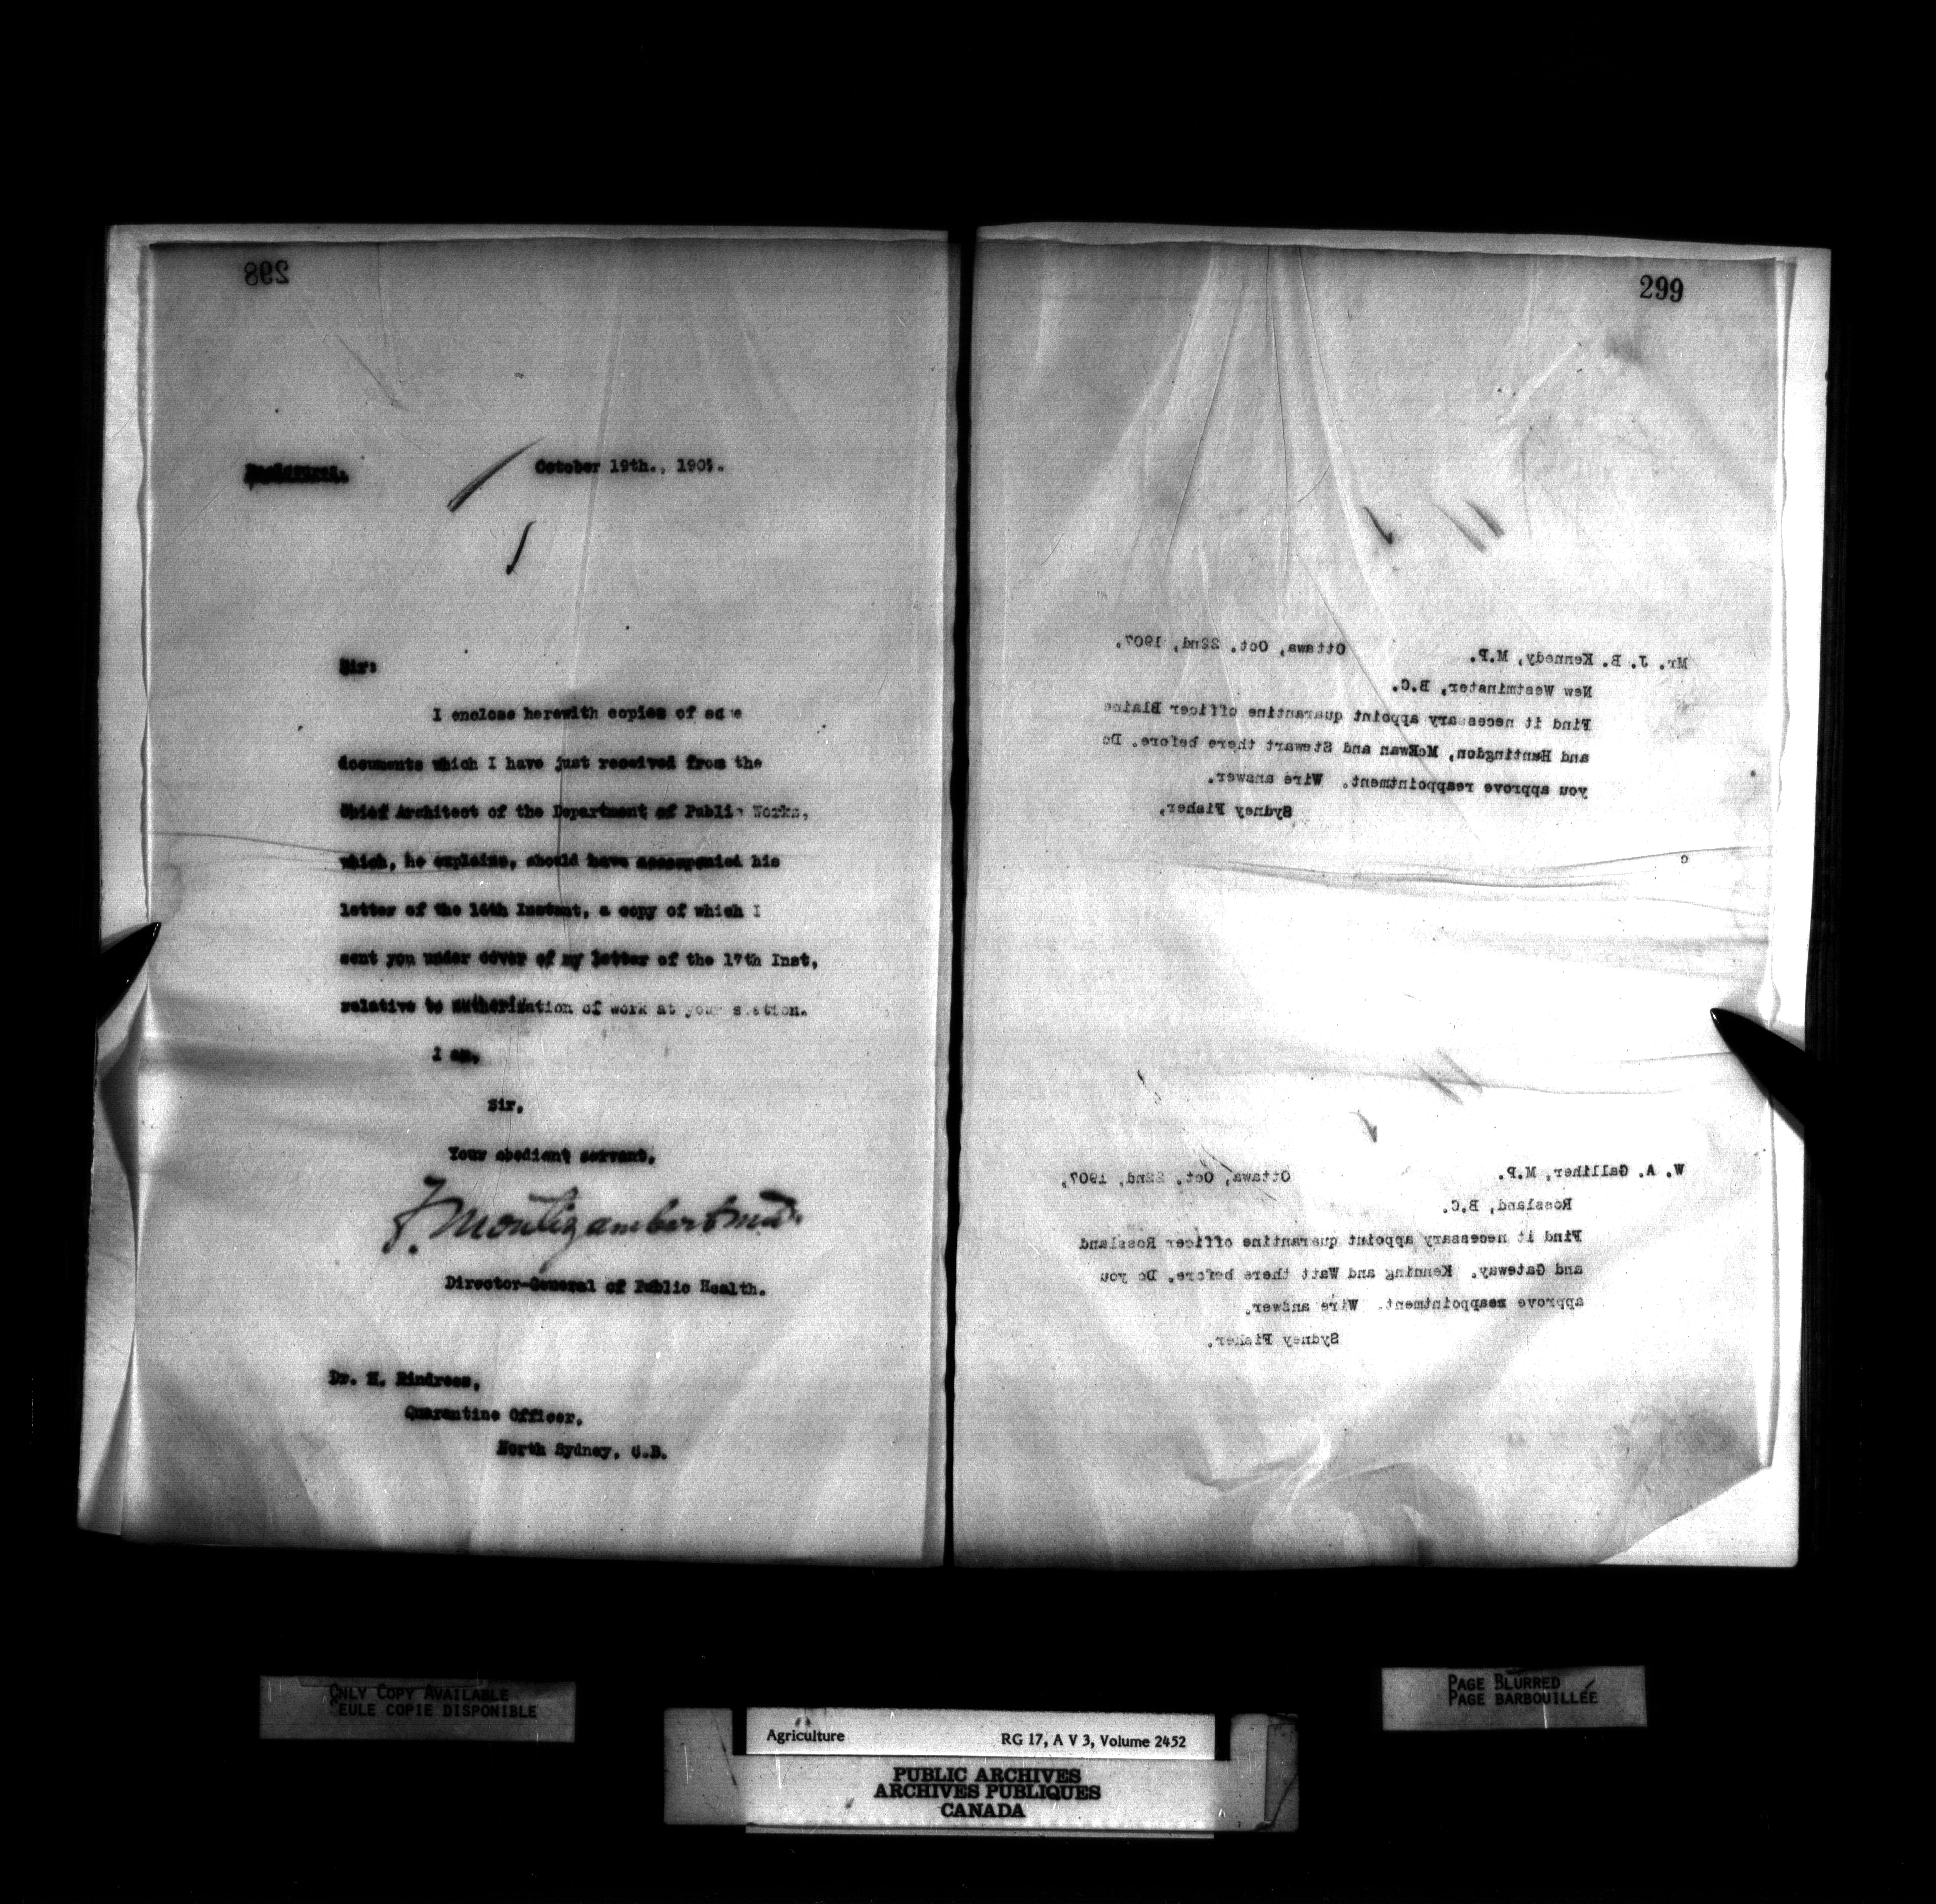 298
October 19th., 190
Sir:
I enclose herewith copies of
documents which I have just received from the
Chief Architect of the Department of Public Works,
which, he explains, should have accompanied his
letter of the 16th Instant, a copy of which I
sent you under cover of my letter of the 17th Inst,
relative to authorization of work at your station.
I am,
Sir,
Your obedient servant,
F. Montizambert M.D.
Director-General of Public Health.
Dr. H. Rindress,
Quarantine Officer,
North Sydney, C.B.
299
Mr. J. B. Kennedy, M.P. Ottawa, Oct. 22nd, 1907.
New Westminster, B.C.
Find it necessary appoint quarantine officer Blaine
and Huntingdon, McEwan and Stewart there before. Do
you approve reappointment. Wire answer.
Sydney Fisher,
W. A. Galliher, M.P. Ottawa, Oct. 22nd, 1907,
Rossland, B.C.
Find it necessary appoint quarantine officer Rossland
and Gateway. Kenning and Watt there before. Do you
approve reappointment. Wire answer.
Sydney Fisher.
ONLY COPY AVAILABLE
SEULE COPIE DISPONIBLE
PAGE BLURRED
PAGE BARBOUILLÉE
Agriculture RG 17, A V 3, Volume 2452
PUBLIC ARCHIVES
ARCHIVES PUBLIQUES
CANADA